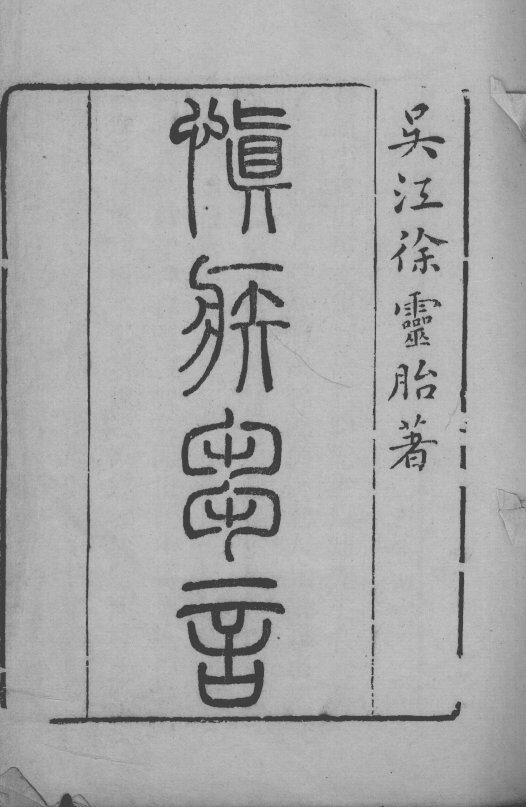 吳江徐靈胎著
愼疾芻言